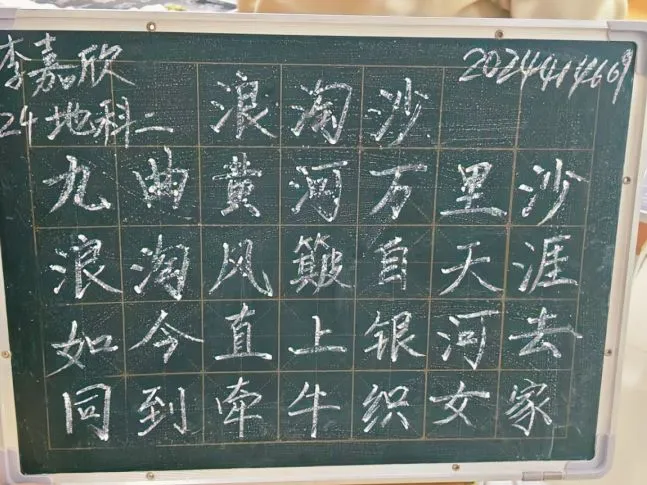 李嘉欣
2024414669
24地科二
浪淘沙
九曲黄河万里沙
浪淘风簸自天涯
如今直上银河去
同到牵牛织女家